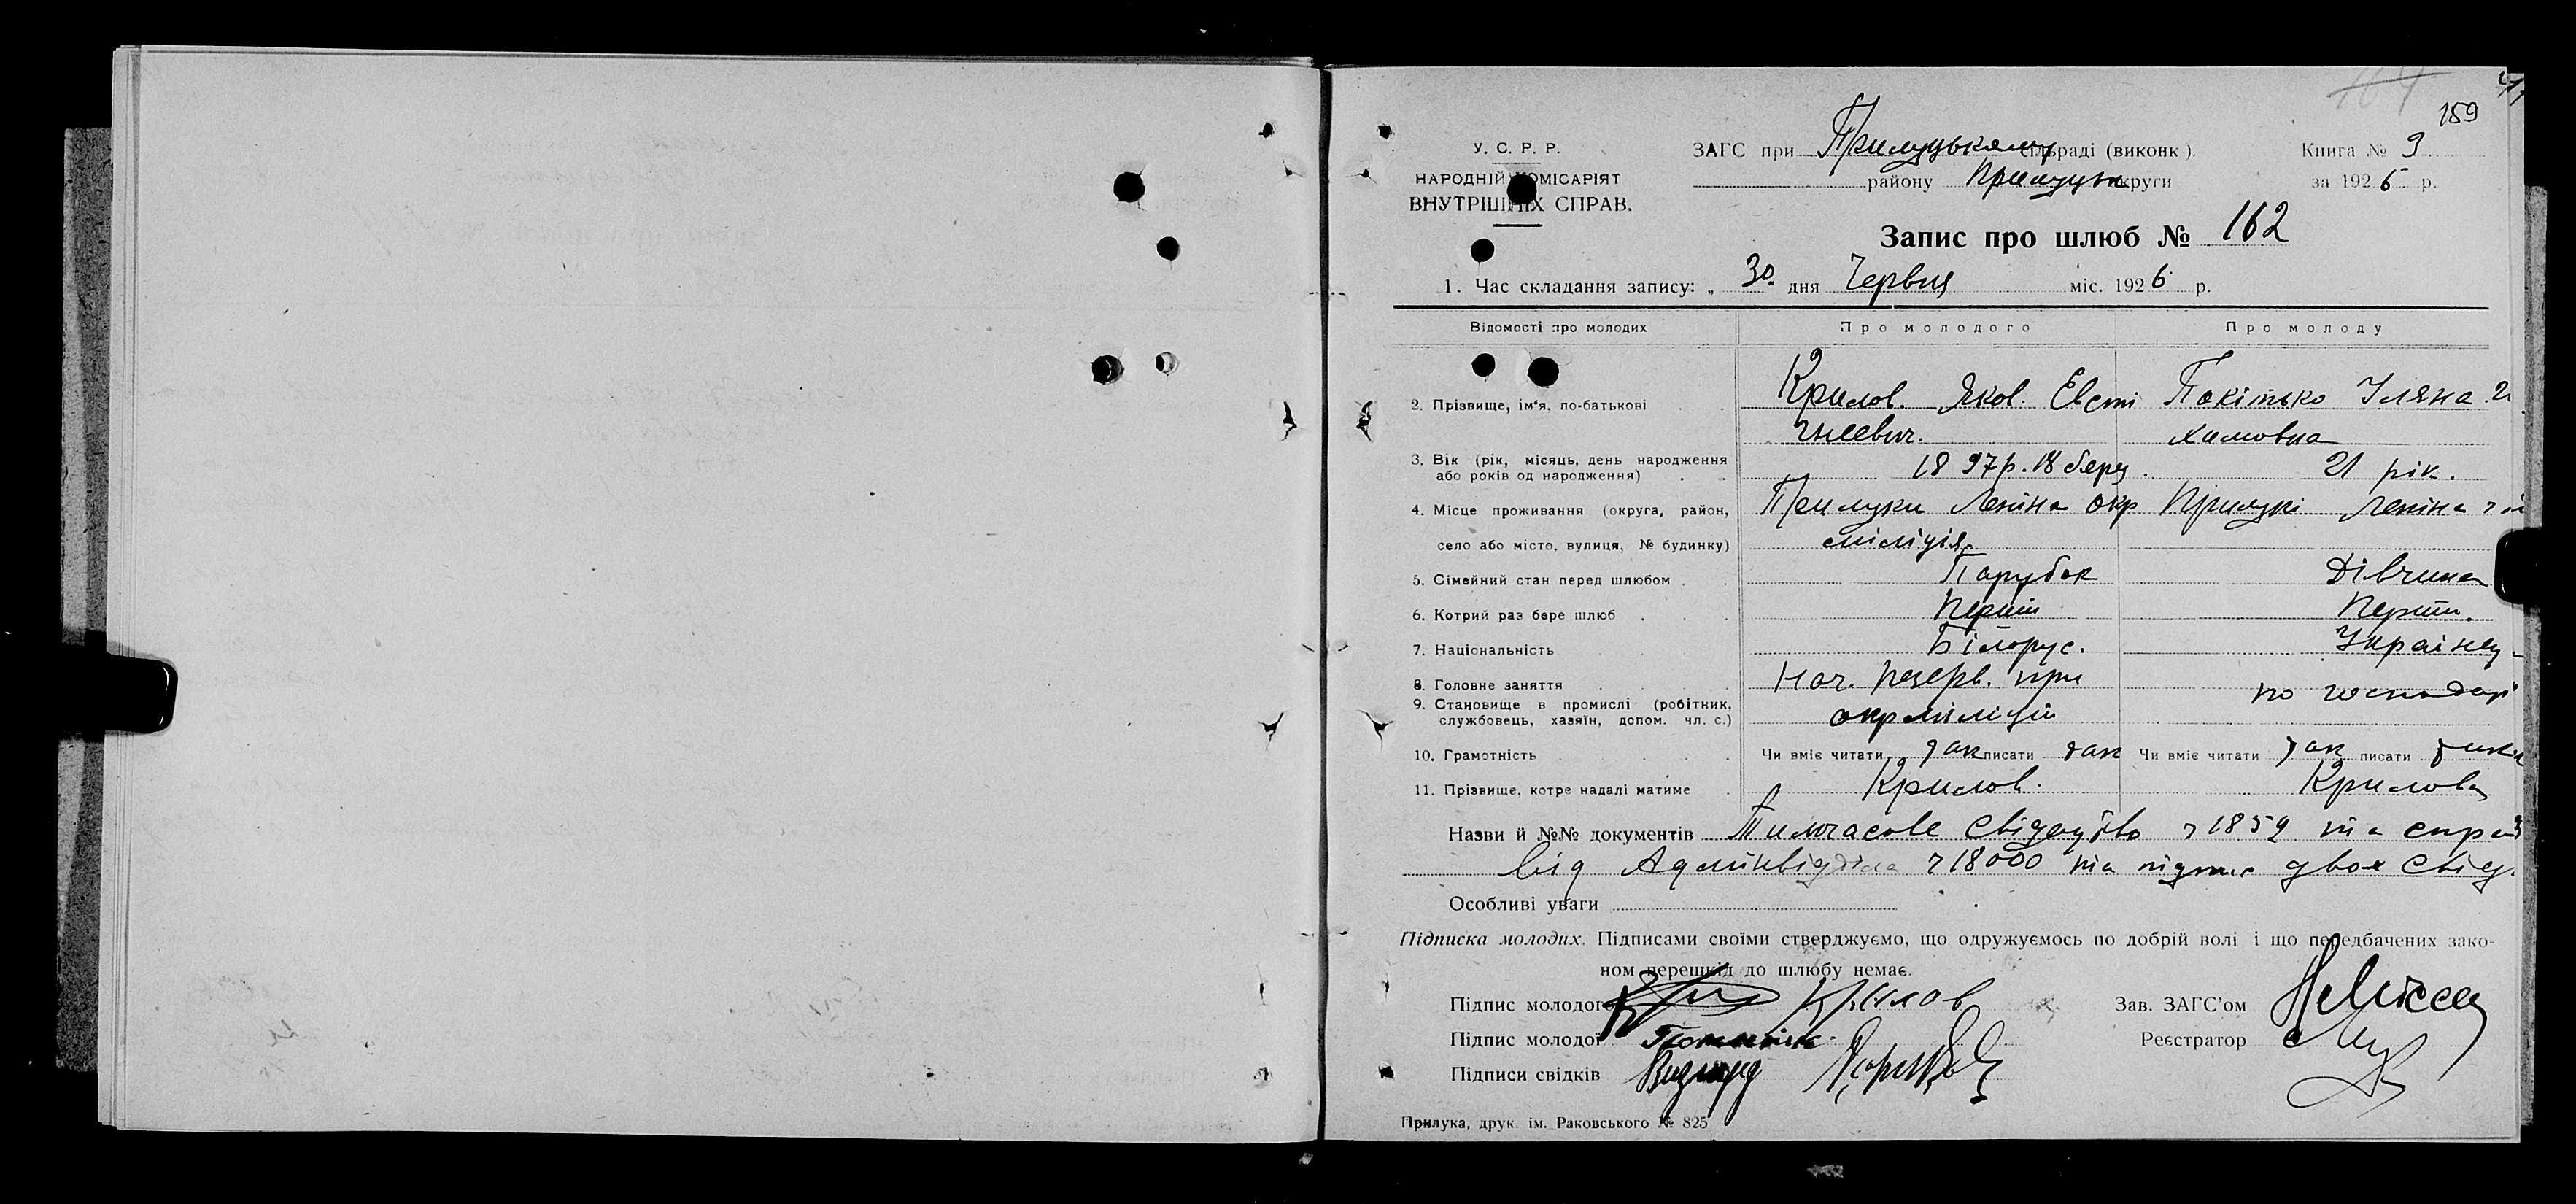 159
У. С. Р. Р.
НАРОДНІЙ КОМІСАРІЯТ
ВНУТРІШНІХ СПРАВ.
ЗАГС при Прилуцькому сільраді (виконк).
району Прилуцьк округи
Книга № 9
за 1926 р.
Запис про шлюб № 162
1. Час складання запису: „ 30 " дня Червня міс. 1926 р.
Відомості про молодих Про молодого Про молоду
2. Прізвище, ім'я, по-батькові Крилов Яков Евсти Покітько Уляна
гнеевич. химовна
3. Вік (рік, місяць, день народження 1897 р. 18 берез. 21 рік.
або років од народження)
4. Місце проживання (округа, район, Прилуки Леніна окр Прилукі Леніна
село або місто, вулиця, № будинку) міліція
5. Сімейний стан перед шлюбом Парубок Дівчина
6. Котрий раз бере шлюб Перший Перший.
7. Національність Білорус. Українец
8. Головне заняття Нач. резерв. при по господар
9. Становище в промислі (робітник, окрміліціи
службовець, хазяїн, допом. чл. с.)
10. Грамотність Чи вміє читати так писати так Чи вміє читати так писати так
11. Прізвище, котре надалі матиме Крилов. Крилова
Назви й №№ документів Тимчасове свідоцтво 1859 та
від Адмінвідділа 18000 та підпис двох свід.
Особливі уваги
Підписка молодих. Підписами своїми стверджуємо, що одружуємось по добрій волі і що передбачених зако-
ном перешкід до шлюбу немає.
Підпис молодого Крилов Зав. ЗАГС'ом
Підпис молодої Реєстратор
Підписи свідків
Прилука, друк. ім. Раковського № 825